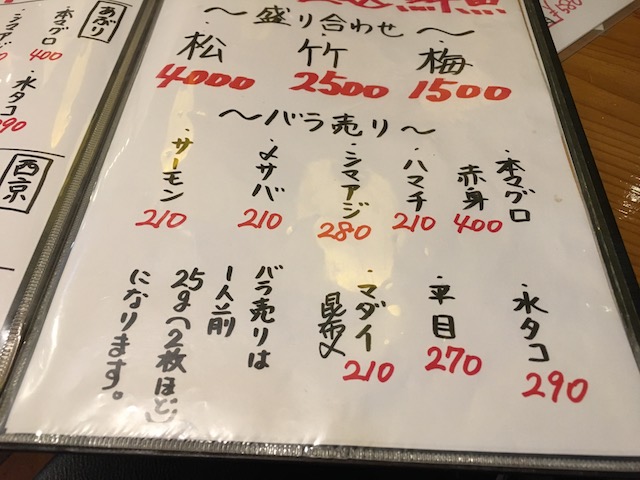 鮮魚
～盛り合わせ～
松
4000
竹
2500
梅
1500
～バラ売り～
・本マグロ
赤身
400
・ハマチ
210
・シマアジ
280
・〆サバ
210
・サーモン
210
・水タコ
290
・平目
270
・マダイ
昆布〆
210
バラ売りは
1人前
25g(2枚ほど)
になります。
あぶり
・本マグロ
400
・シマアジ
・水タコ
290
西京